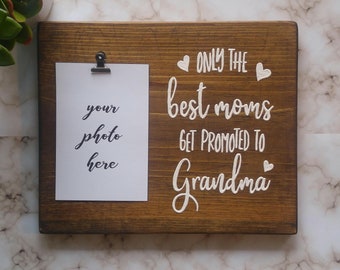 your
photo
here
ONLY THE
best moms
GET PROMOTED TO
Grandma